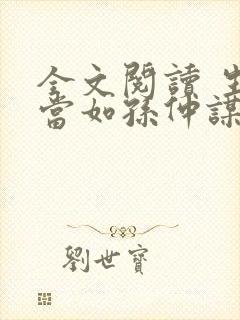 全文閱讀 生
當如孫仲謀
劉世寶